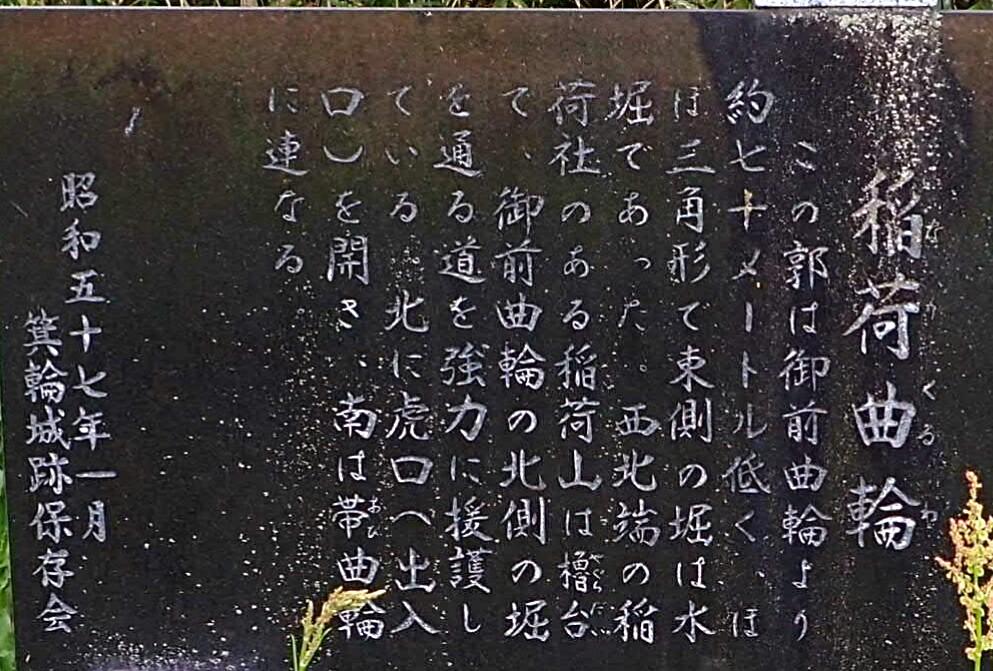 稲荷曲輪
この郭は御前曲輪より
約七十メートル低く、ほ
ぼ三角形で東側の堀は水
堀であった。西北端の稲
荷社のある稲荷山は櫓台
て、御前曲輪の北側の堀
を通る道を強力に援護し
ている 北に虎口(出入
口)を開き、南は帯曲輪
に連なる
昭和五十七年一月
箕輪城跡保存会